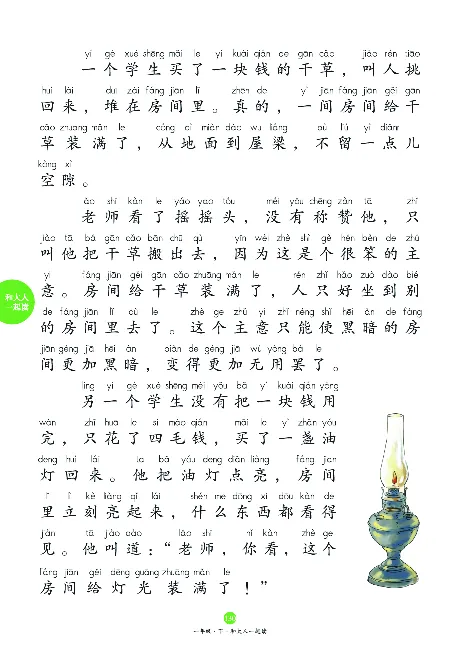 yí gè xué shēng mǎi le yí kuài qián de gān cǎo jiào rén tiāo
一个学生买了一块钱的干草，叫人挑
huí lái duī zài fáng jiān lǐ zhēn de yì jiān fáng jiān gěi gān
回来，堆在房间里。真的，一间房间给干
cǎo zhuāng mǎn le cóng dì miàn dào wū liáng bù liú yì diǎnr
草装满了，从地面到屋梁，不留一点儿
kòng xì
空隙。
lǎo shī kàn le yáo yao tóu méi yǒu chēng zàn tā zhǐ
老师看了摇摇头，没有称赞他，只
jiào tā bǎ gān cǎo bān chū qù yīn wèi zhè shì gè hěn bèn de zhǔ
叫他把干草搬出去，因为这是个很笨的主
yi fáng jiān gěi gān cǎo zhuāng mǎn le rén zhǐ hǎo zuò dào bié
意。房间给干草装满了，人只好坐到别
de fáng jiān lǐ qù le zhè ge zhǔ yi zhǐ néng shǐ hēi àn de fáng
的房间里去了。这个主意只能使黑暗的房
jiān gèng jiā hēi àn biàn de gèng jiā wú yòng bà le
间更加黑暗，变得更加无用罢了。
lìng yí gè xué shēng méi yǒu bǎ yí kuài qián yòng
另一个学生没有把一块钱用
wán zhǐ huā le sì máo qián mǎi le yì zhǎn yóu
完，只花了四毛钱，买了一盏油
dēng huí lái tā bǎ yóu dēng diǎn liàng fáng jiān
灯回来。他把油灯点亮，房间
lǐ lì kè liàng qǐ lái shén me dōng xi dōu kàn de
里立刻亮起来，什么东西都看得
jiàn tā jiào dào lǎo shī nǐ kàn zhè ge
见。他叫道：“老师，你看，这个
fáng jiān gěi dēng guāng zhuāng mǎn le
房间给灯光装满了！”
和大人
一起读
一年级·下·和大人一起读